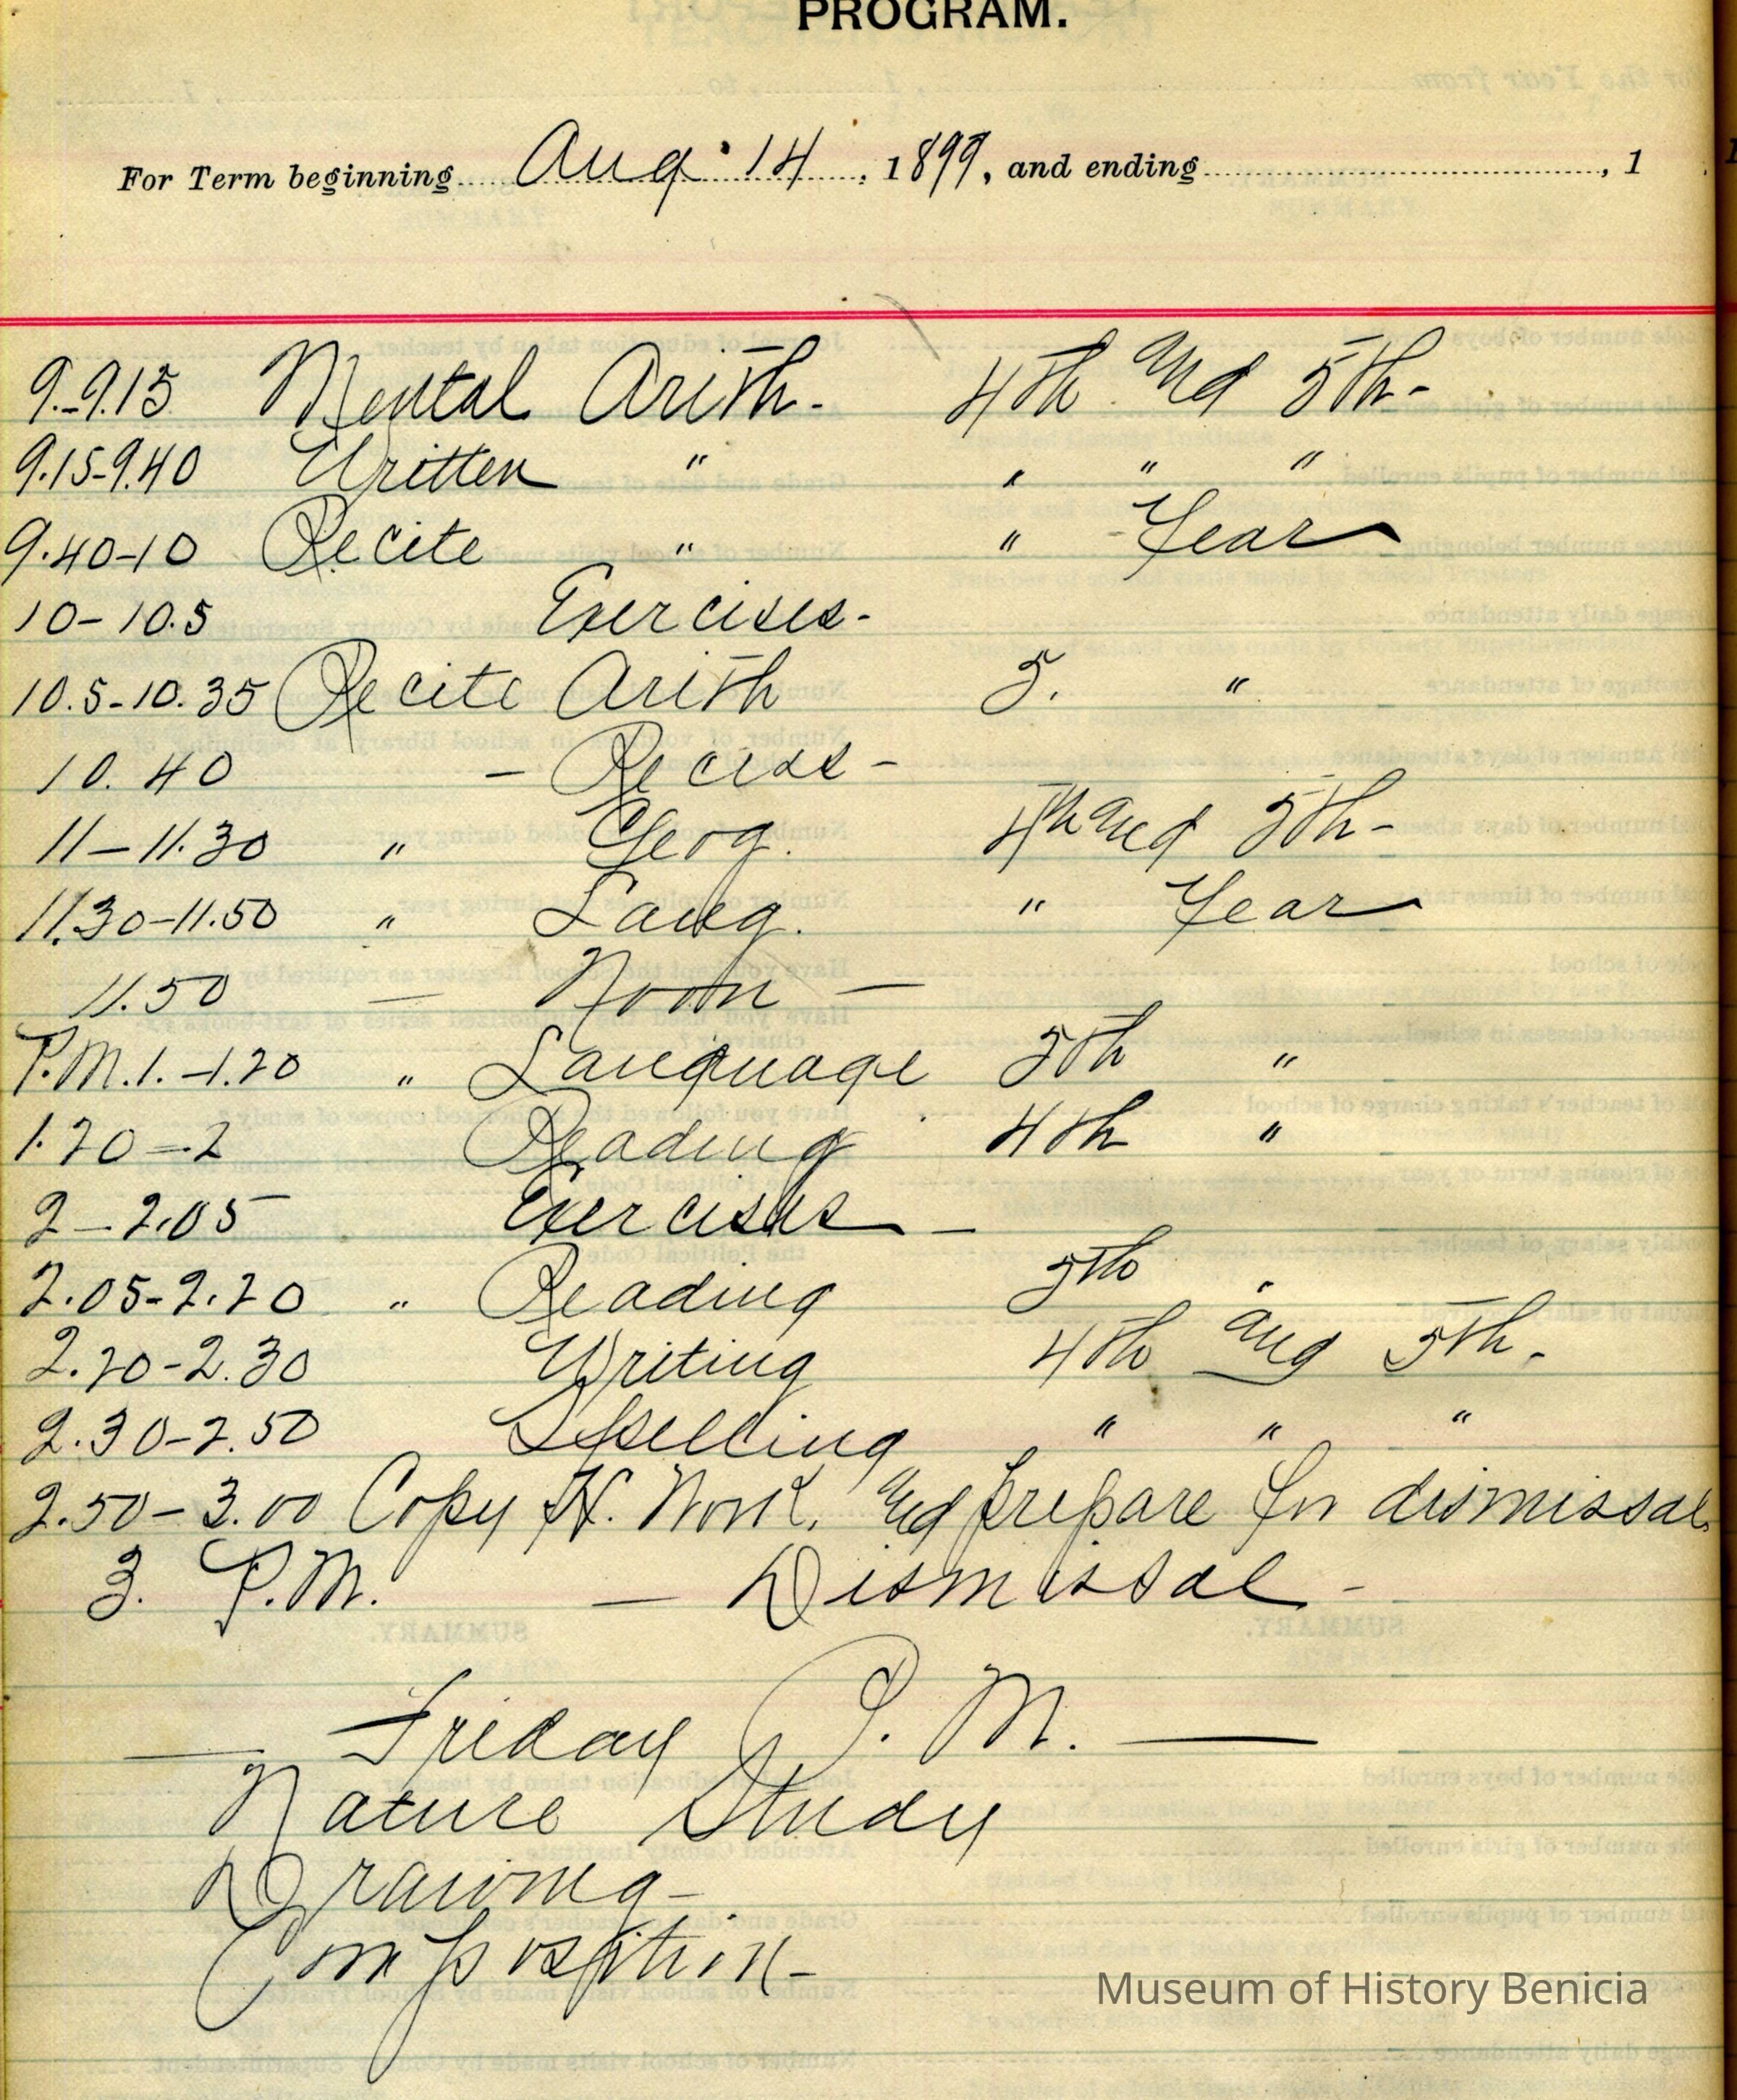 PROGRAM.
For Term beginning Aug. 14, 1899, and ending, 1
9.-9.15 Mental Arith. - 4th and 5th -
9.15-9.40 Written " " " "
9.40-10 Recite " " Year
10-10.5 Exercises -
10.5-10.35 Recite Arith 5. "
10.40 - Recess -
11-11.30 " Geog. 4th and 5th -
11.30-11.50 " Lang. " Year
11.50 — Noon —
P.M. 1.-1.20 " Language 5th "
1.20-2 Reading 4th "
2-2.05 Exercises -
2.05-2.20 " Reading 5th "
2.20-2.30 Writing 4th and 5th.
2.30-2.50 Spelling " " "
2.50-3.00 Copy H. Work. and prepare for dismissal.
3. P.M. — Dismissal -
— Friday P. M. —
Nature Study
Drawing -
Composition -
Museum of History Benicia